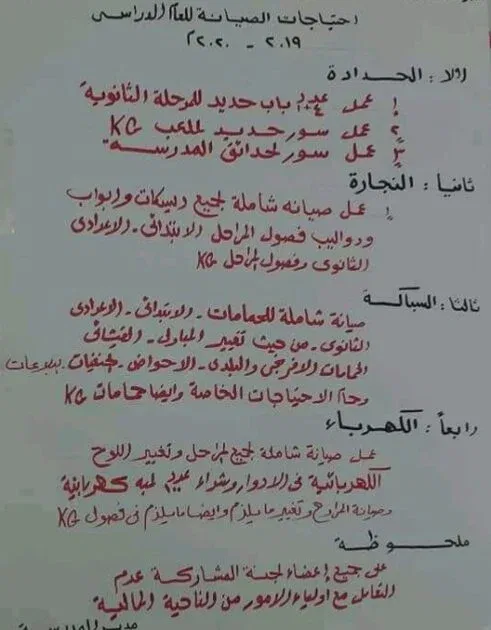 احتياجات الصيانة للعام الدراسى
٢٠١٩ - ٢٠٢٠
اولا : الحدادة
١ عمل عدد ٤ باب حديد للمرحلة الثانوية
٢ عمل سور حديد لملعب KG
٣ عمل سور لحدائق المدرسة
ثانيا : النجارة
١ عمل صيانه شاملة لجميع ديسكات وابواب
ودواليب فصول المراحل الابتدائى - الاعدادى
الثانوى وفصول المراحل KG
ثالثا : السباكة
صيانة شاملة للحمامات - الابتدائى - الاعدادى
الثانوى - من حيث تغيير المباول - القيشانى
الحمامات الافرنجى والبلدى - الاحواض - الحنفيات -
وحمام الاحتياجات الخاصة وايضا حمامات KG
رابعاً : الكهرباء
عمل صيانة شاملة لجميع المراحل وتغيير اللوح
الكهربائية فى الادوار وشراء عدد لمبه كهربائية
وصيانة المراوح وتغيير ما يلزم وايضا ما يلزم فى فصول KG
ملحوظة
على جميع اعضاء لجنة المشاركة عدم
التعامل مع اولياء الامور من الناحية المالية
مدير المدرسة